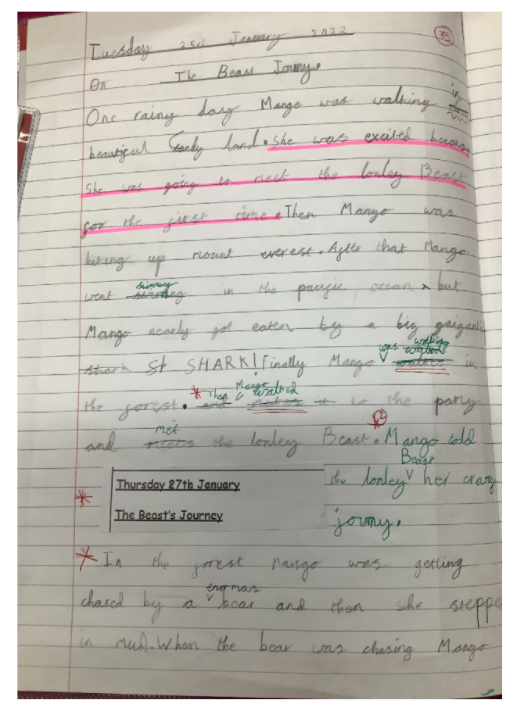 Tuesday 25th January 2022
On The Beast Jouny.
One rainy day Mango was walking in
beautiful Candy land. She was excited because
She was going to meet the lonley Beast
for the first time. Then Mango was
hiking up mount everest. After that Mango
went swimming in the pacific ocean but
Mango nearly got eaten by a big gigantic
shark St SHARK! Finally Mango was walking in
the forest. Then Mango walked to the party
and met the lonley Beast. Mango told
the lonley Beast her crazy
jouny.
Thursday 27th January
The Beast's Journey
In the forest Mango was getting
chased by a enormas bear and then she stepped
in mud. When the bear was chasing Mango